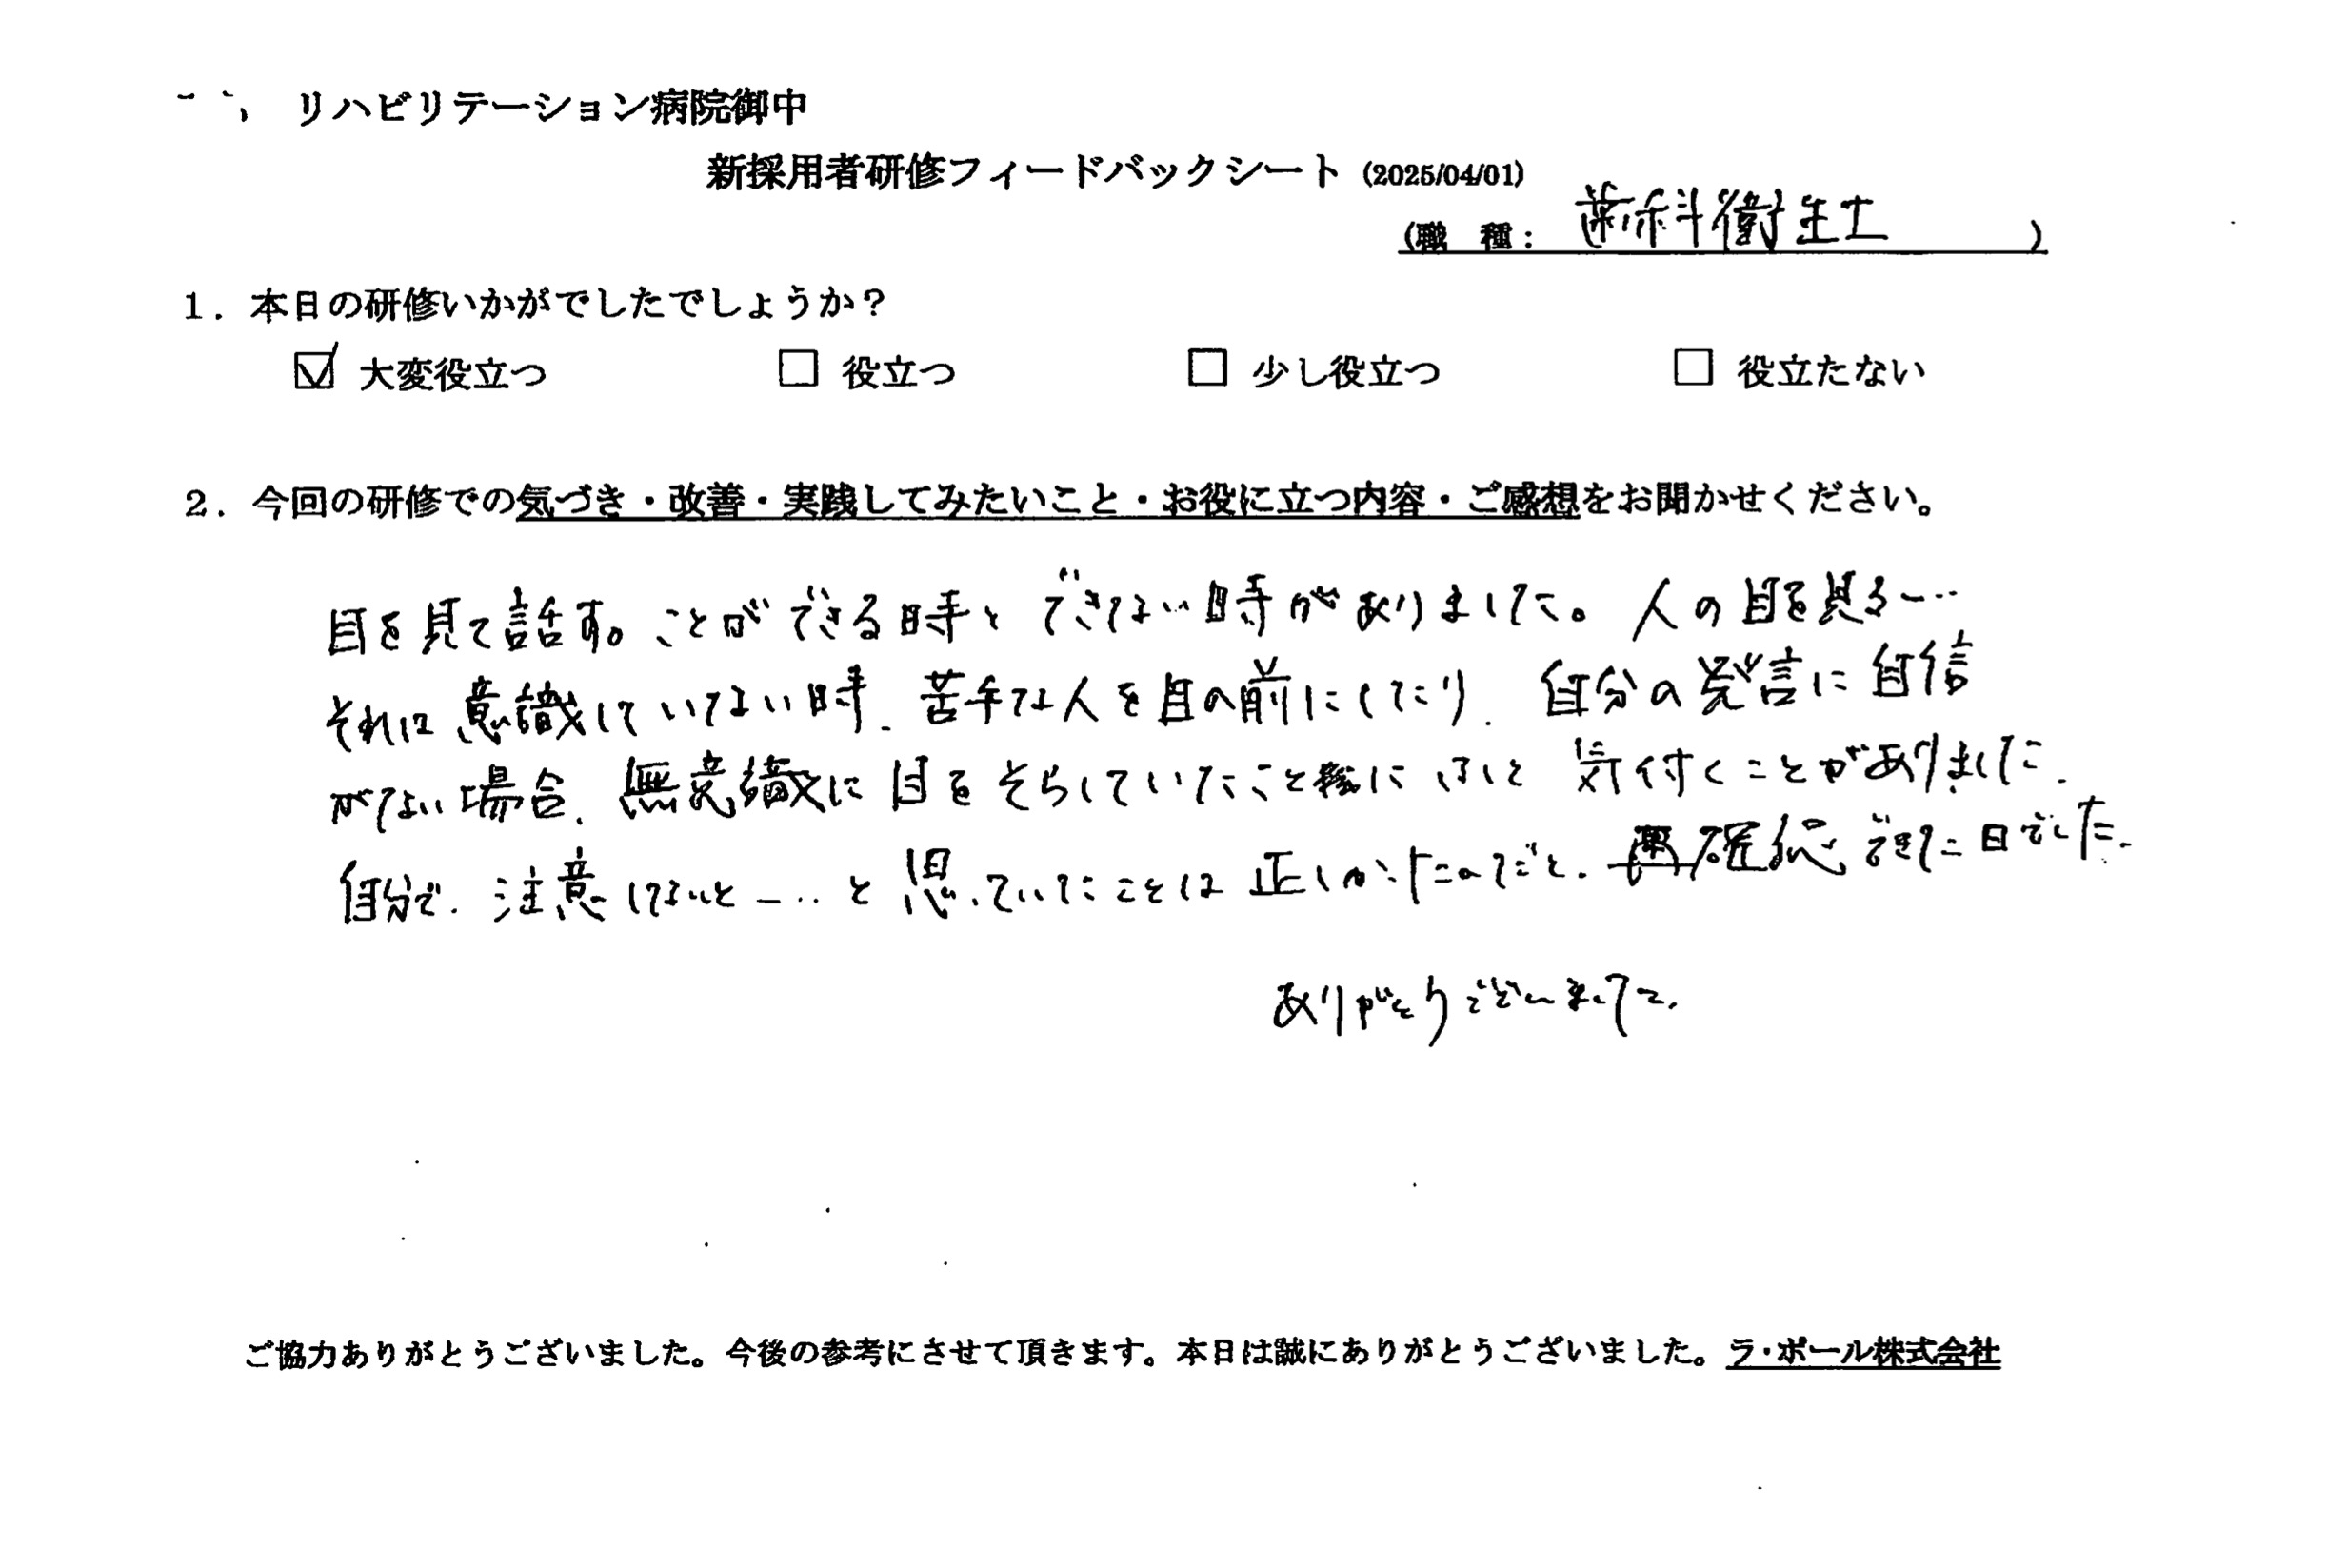 リハビリテーション病院御中
新採用者研修フィードバックシート (2025/04/01)
(職　種： 歯科衛生士 )
1. 本日の研修いかがでしたでしょうか？
☑ 大変役立つ □ 役立つ □ 少し役立つ □ 役立たない
2. 今回の研修での気づき・改善・実践してみたいこと・お役に立つ内容・ご感想をお聞かせください。
目を見て話す。ことができる時と できない時がありました。人の目を見る…
それは意識していない時、苦手な人を目の前にしたり、自分の発言に自信
がない場合、無意識に目をそらしていたこと に ふと 気付くことがありました。
自分で、注意しないと…と思っていたことは正しかったのだと、再確認できた日でした。
ありがとうございました。
ご協力ありがとうございました。今後の参考にさせて頂きます。本日は誠にありがとうございました。ラ・ポール株式会社